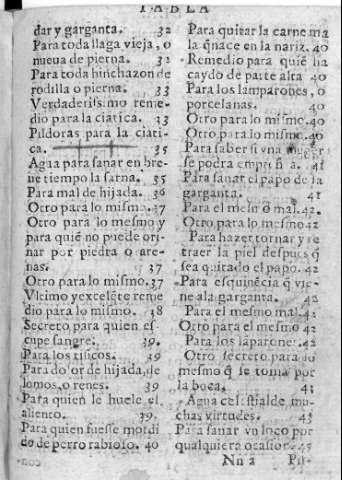 TABLA
dar y garganta. 32
Para toda llaga vieja, o
nueua de pierna. 32
Para toda hinchazon de
rodilla o pierna. 33
Verdaderissimo reme-
dio para la ciatica. 33
Pildoras para la ciati-
ca. 35
Agua para sanar en bre-
ue tiempo la sarna. 35
Para mal de hijada. 36
Otro para lo mismo. 37
Otro para lo mesmo y
para quiẽ no puede ori-
nar por piedra o are-
nas. 37
Otro para lo mismo. 37
Vltimo y excelẽte reme
dio para lo mismo. 38
Secreto para quien es-
cupe sangre. 39.
Para los tisicos. 39
Para dolor de hijada, de
lomos, o renes. 39
Para quien le huele el
aliento. 39.
Para quien fuesse mordi
do de perro rabioso. 40
Para quitar la carne ma
la q̃ nace en la nariz. 40
Remedio para quiẽ ha
caydo de parte alta 40
Para los lamparones, o
porcelanas. 40
Otro para lo mismo. 40
Otro para lo mismo. 40
Para saber si vna muger
se podra empreñar. 41
Para sanar el papo de la
garganta. 41
Para el mesmo mal. 42.
Otro para lo mesmo 42
Para hazer tornar y re
traer la piel despues q̃
sea quitado el papo. 42
Para esquinẽcia q̃ vie-
ne a la garganta. 42
Para el mesmo mal. 42
Otro para el mesmo 42
Para los lãparones. 42
Otro secreto para lo
mesmo q̃ se toma por
la boca. 43
Agua celestial de mu-
chas virtudes. 43
Para sanar vn loco por
qualquiera ocasion. 45
Nn 2 Pil-